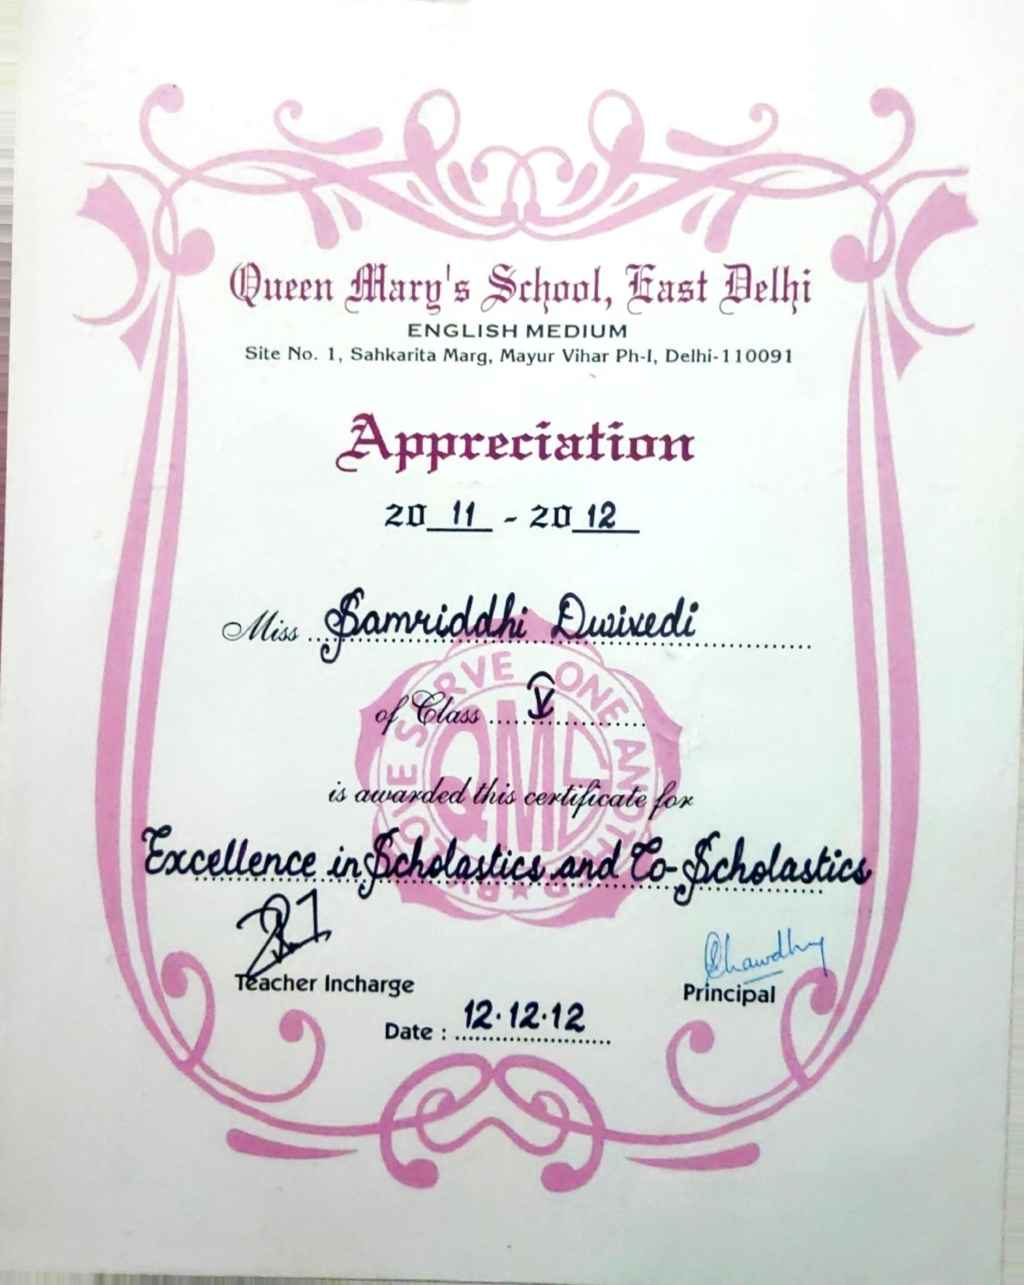 Queen Mary's School, East Delhi
ENGLISH MEDIUM
Site No. 1, Sahkarita Marg, Mayur Vihar Ph-I, Delhi-110091
Appreciation
20 11 - 20 12
Miss Samriddhi Dwivedi
of Class V
is awarded this certificate for
Excellence in Scholastics and Co-Scholastics
SERVE ONE ANOTHER
QMS
Chawdhry
Teacher Incharge
Principal
Date : 12.12.12